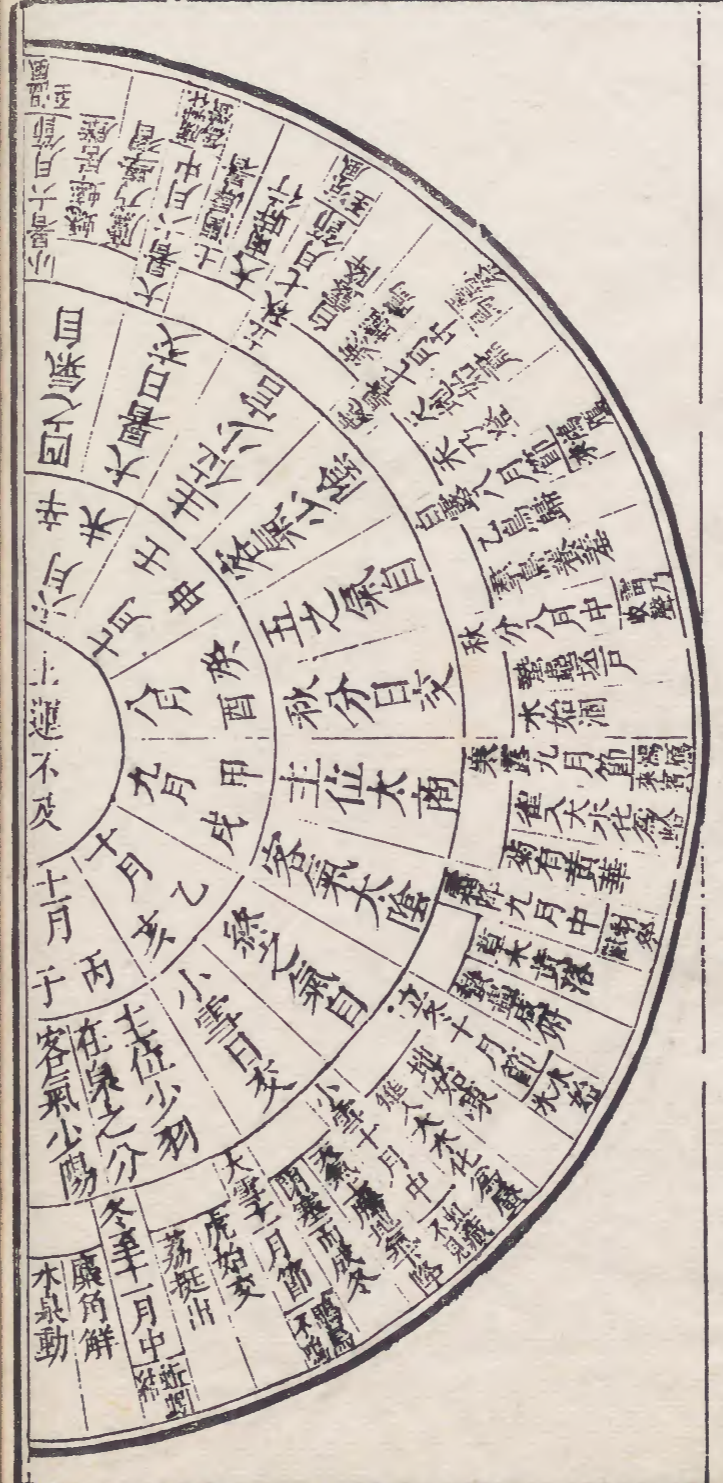 土運不及
六月
辛未
七月
壬申
八月
癸酉
九月
甲戌
十月
乙亥
十一月
丙子
四之氣自
大暑日交
主位少宮
客氣少陰
五之氣自
秋分日交
主位太商
客氣太陰
終之氣自
小雪日交
主位少羽
在泉之分
客氣少陽
小暑六月節
溫風至
蟋蟀居壁
鷹乃學習
大暑六月中
土潤溽暑
大雨時行
立秋七月節
涼風至
白露降
寒蟬鳴
處暑七月中
天地始肅
禾乃登
白露八月節
鴻鴈來
乙鳥歸
羣鳥養羞
秋分八月中
雷乃收聲
蟄蟲坯戶
水始涸
寒露九月節
鴻鴈來賓
雀入大水化為蛤
菊有黃華
霜降九月中
草木黃落
蟄蟲咸俯
立冬十月節
水始冰
地始凍
雉入大水化為蜃
小雪十月中
虹藏不見
天氣騰地氣下降
閉塞而成冬
大雪十一月節
鶡鳥不鳴
虎始交
荔挺出
冬至十一月中
蚯蚓結
麋角解
水泉動